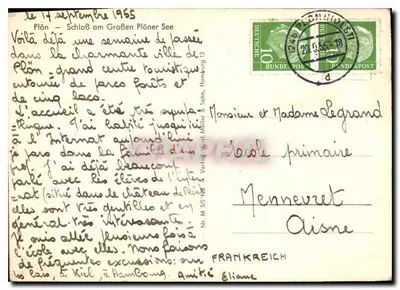 le 17 septembre 1955
Plön - Schloß am Großen Plöner See
Voilà déjà une semaine de passée
dans la charmante ville de
Plön grand centre touristique
entourée de parcs forêts et
de cinq lacs.
L'accueil a été très sympa-
thique. J'ai habité jusqu'ici
à l'Internat aujourd'hui
je pars dans la famille
J'ai déjà beaucoup
parlé avec les élèves de l'inter-
nat (situé dans le château de Plön)
elles sont très gentilles et en
général très intéressantes.
Je suis allée plusieurs fois à
l'école avec elles. Nous faisons
de fréquentes excursions: sur
les lacs, à Kiel, à Hambourg. Amitié
Eliane
Verlag Rud. Müller & Sohn, Hamburg 13
Nr. M
PLÖN (HOLST)
DEUTSCHE
BUNDESPOST
10
BUNDESPOST
Monsieur et Madame Legrand
école primaire
Mennevret
Aisne
FRANKREICH